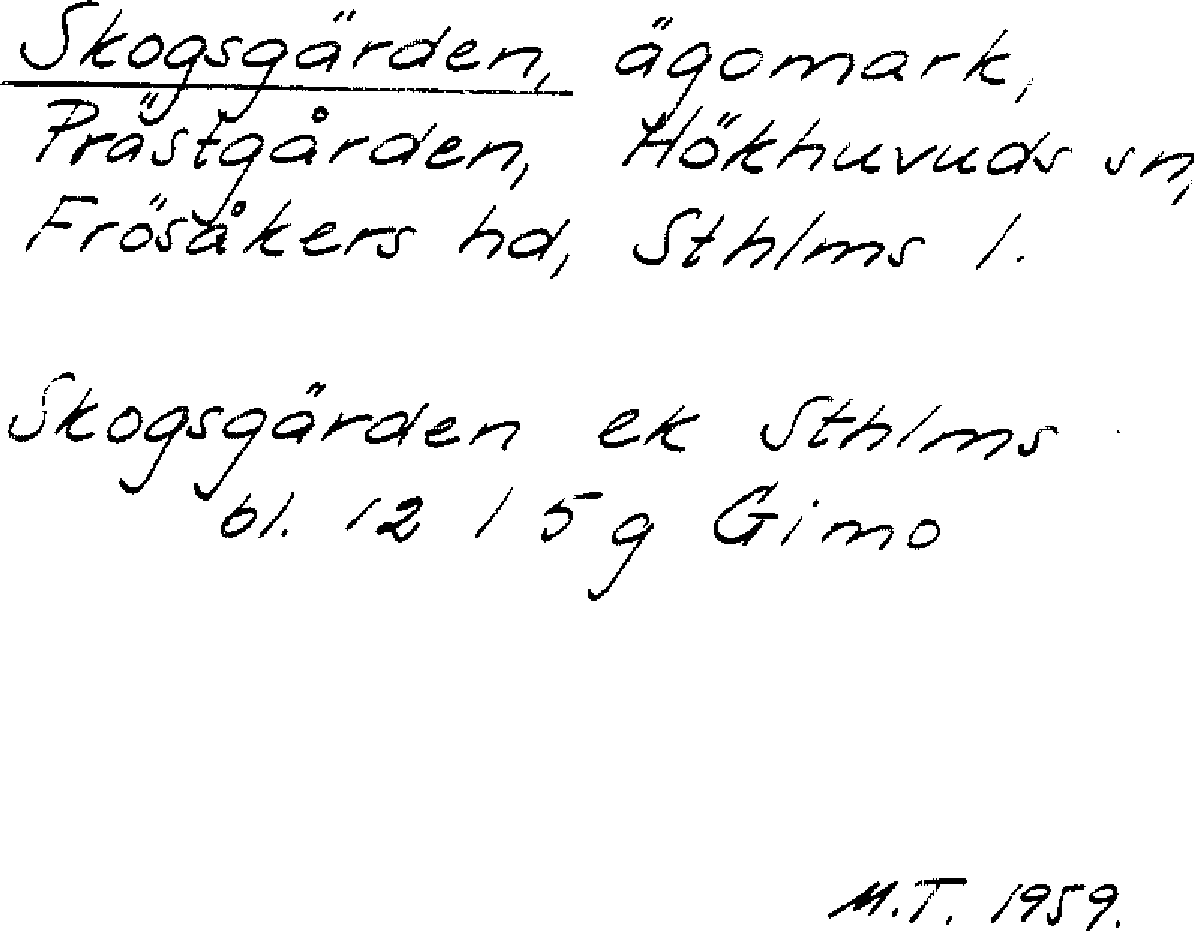 Skogsgärden, ägomark,
Prästgården, Hökhuvuds sn,
Frösåkers hd, Sthlms l.
Skogsgärden ek Sthlms
bl. 12 I 5g Gimo
M.T. 1959.